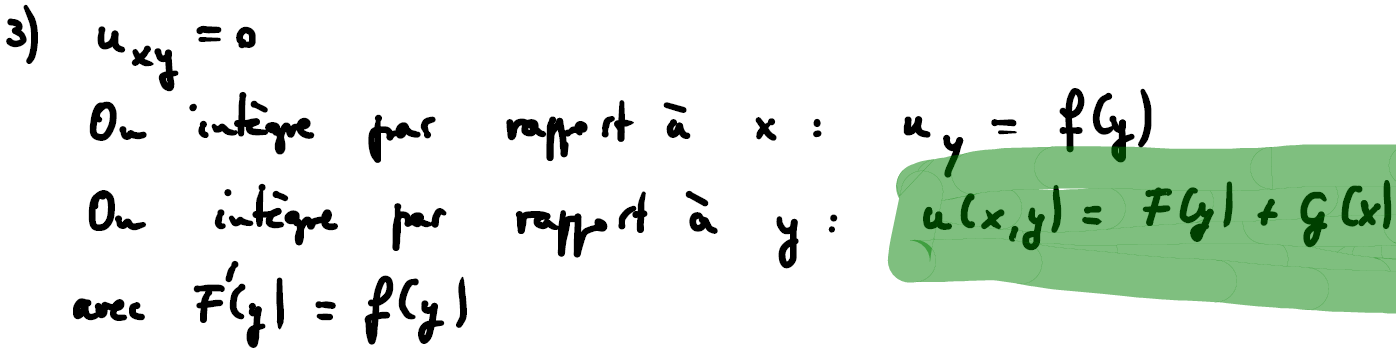 3) u_xy = 0
On intègre par rapport à x : u_y = f(y)
On intègre par rapport à y : u(x,y) = F(y) + G(x)
avec F'(y) = f(y)